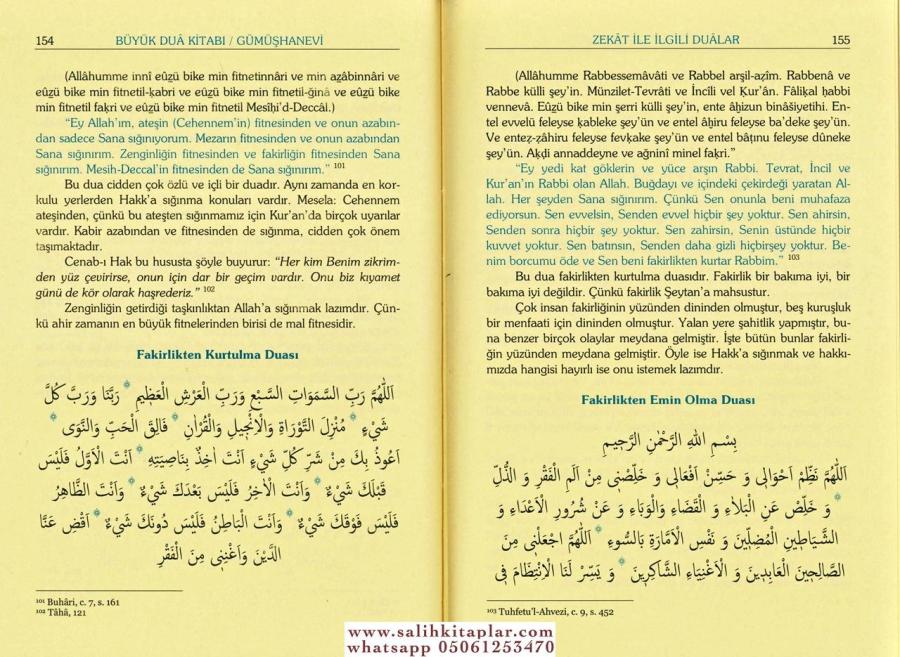 154 BÜYÜK DUÂ KİTABI / GÜMÜŞHANEVİ
(Allâhumme innî eûẕü bike min fitnetinnâri ve min aẕâbinnâri ve
eûẕü bike min fitnetil-ḳabri ve eûẕü bike min fitnetil-ğinâ ve eûẕü bike
min fitnetil faḳri ve eûẕü bike min fitnetil Mesîḥi'd-Deccâl.)
"Ey Allah'ım, ateşin (Cehennem'in) fitnesinden ve onun azabın-
dan sadece Sana sığınıyorum. Mezarın fitnesinden ve onun azabından
Sana sığınırım. Zenginliğin fitnesinden ve fakirliğin fitnesinden Sana
sığınırım. Mesih-Deccal'in fitnesinden de Sana sığınırım." 101
Bu dua cidden çok özlü ve içli bir duadır. Aynı zamanda en kor-
kulu yerlerden Hakk'a sığınma konuları vardır. Mesela: Cehennem
ateşinden, çünkü bu ateşten sığınmamız için Kur'an'da birçok uyarılar
vardır. Kabir azabından ve fitnesinden de sığınma, cidden çok önem
taşımaktadır.
Cenab-ı Hak bu hususta şöyle buyurur: "Her kim Benim zikrim-
den yüz çevirirse, onun için dar bir geçim vardır. Onu biz kıyamet
günü de kör olarak haşrederiz." 102
Zenginliğin getirdiği taşkınlıktan Allah'a sığınmak lazımdır. Çün-
kü ahir zamanın en büyük fitnelerinden birisi de mal fitnesidir.
Fakirlikten Kurtulma Duası
اَللّٰهُمَّ رَبِّ السَّمٰوَاتِ السَّبْعِ وَرَبِّ الْعَرْشِ الْعَظِيمِ * رَبَّنَا وَرَبَّ كُلِّ
شَيْءٍ * مُنْزِلَ التَّوْرَاةِ وَالْاِنْجِيلِ وَالْقُرْاٰنِ * فَالِقَ الْحَبِّ وَالنَّوٰى *
اَعُوذُ بِكَ مِنْ شَرِّ كُلِّ شَيْءٍ اَنْتَ اٰخِذٌ بِنَاصِيَتِهِ * اَنْتَ الْاَوَّلُ فَلَيْسَ
قَبْلَكَ شَيْءٌ * وَاَنْتَ الْاٰخِرُ فَلَيْسَ بَعْدَكَ شَيْءٌ * وَاَنْتَ الظَّاهِرُ
فَلَيْسَ فَوْقَكَ شَيْءٌ * وَاَنْتَ الْبَاطِنُ فَلَيْسَ دُونَكَ شَيْءٌ * اَقْضِ عَنَّا
الدَّيْنَ وَاَغْنِنِى مِنَ الْفَقْرِ
101 Buhâri, c. 7, s. 161
102 Tâhâ, 121
ZEKÂT İLE İLGİLİ DUÂLAR 155
(Allâhumme Rabbessemâvâti ve Rabbel arşil-aẓîm. Rabbenâ ve
Rabbe külli şey'in. Münzilet-Tevrâti ve İncîli vel Ḳur'ân. Fâliḳal ḥabbi
vennevâ. Eûẕü bike min şerri külli şey'in, ente âḫizun binâṣiyetihi. En-
tel evvelü feleyse ḳableke şey'ün ve entel âḫiru feleyse ba'deke şey'ün.
Ve enteẓ-ẓâhiru feleyse fevḳake şey'ün ve entel bâṭınu feleyse dûneke
şey'ün. Aḳḍi annaddeyne ve ağninî minel faḳri."
"Ey yedi kat göklerin ve yüce arşın Rabbi. Tevrat, İncil ve
Kur'an'ın Rabbi olan Allah. Buğdayı ve içindeki çekirdeği yaratan Al-
lah. Her şeyden Sana sığınırım. Çünkü Sen onunla beni muhafaza
ediyorsun. Sen evvelsin, Senden evvel hiçbir şey yoktur. Sen ahirsin,
Senden sonra hiçbir şey yoktur. Sen zahirsin, Senin üstünde hiçbir
kuvvet yoktur. Sen batınsın, Senden daha gizli hiçbirşey yoktur. Be-
nim borcumu öde ve Sen beni fakirlikten kurtar Rabbim." 103
Bu dua fakirlikten kurtulma duasıdır. Fakirlik bir bakıma iyi, bir
bakıma iyi değildir. Çünkü fakirlik Şeytan'a mahsustur.
Çok insan fakirliğinin yüzünden dininden olmuştur, beş kuruşluk
bir menfaati için dininden olmuştur. Yalan yere şahitlik yapmıştır, bu-
na benzer birçok olaylar meydana gelmiştir. İşte bütün bunlar fakirli-
ğin yüzünden meydana gelmiştir. Öyle ise Hakk'a sığınmak ve hakkı-
mızda hangisi hayırlı ise onu istemek lazımdır.
Fakirlikten Emin Olma Duası
بِسْمِ اللهِ الرَّحْمٰنِ الرَّحِيمِ
اَللّٰهُمَّ نَظِّمْ اَحْوَالِى وَ حَسِّنْ اَفْعَالِى وَ خَلِّصْنِى مِنْ اَلَمِ الْفَقْرِ وَ الذُّلِّ
* وَ خَلِّصْ عَنِ الْبَلَاءِ وَ الْقَضَاءِ وَالْوَبَاءِ وَ عَنْ شُرُورِ الْاَعْدَاءِ وَ
الشَّيَاطِينِ الْمُضِلِّينَ وَ نَفْسِ الْاَمَّارَةِ بِالسُّوءِ * اَللّٰهُمَّ اجْعَلْنِى مِنَ
الصَّالِحِينَ الْعَابِدِينَ وَ الْاَغْنِيَاءِ الشَّاكِرِينَ * وَ يَسِّرْ لَنَا الْاِنْتِظَامَ فِى
103 Tuhfetu'l-Ahvezi, c. 9, s. 452
www.salihkitaplar.com
whatsapp 05061253470